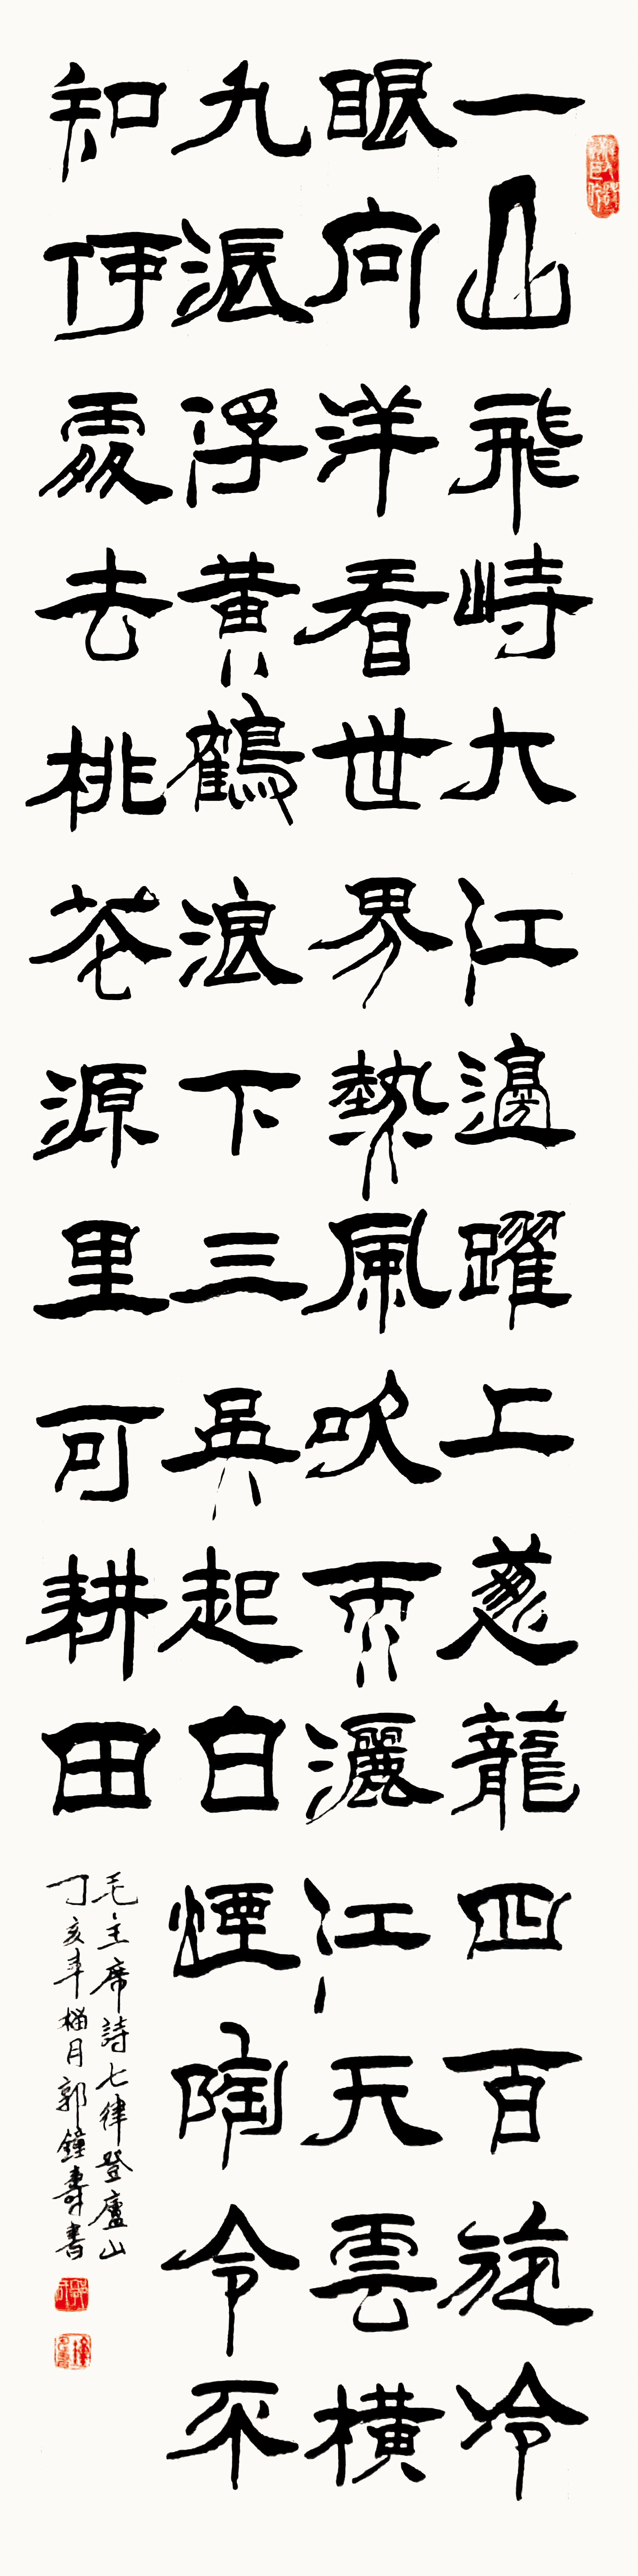 一山飛峙大江邊躍上蔥蘢四百旋冷
眼向洋看世界熱風吹雨灑江天雲橫
九派浮黃鶴浪下三吳起白煙陶令不
知何處去桃花源里可耕田
毛主席詩七律登廬山
丁亥年榴月郭鐘壽書